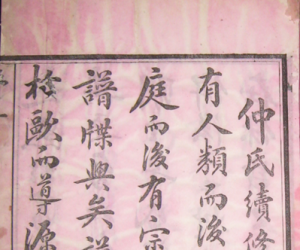 仲氏續修
有人類而後
庭而後有宗
譜牒興矣
於歐而導源